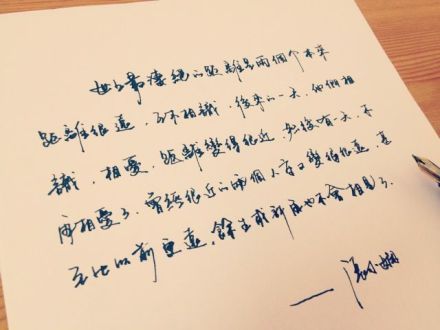 世上最淒絕的距離是兩個人本來
距離很遠，互不相識，後來的一天，他們相
識，相愛，距離變得很近，然後有一天，不
再相愛了，曾經很近的兩個人又變很遠，甚
至比以前更遠，餘生或許再也不會相見了。
——張小嫻